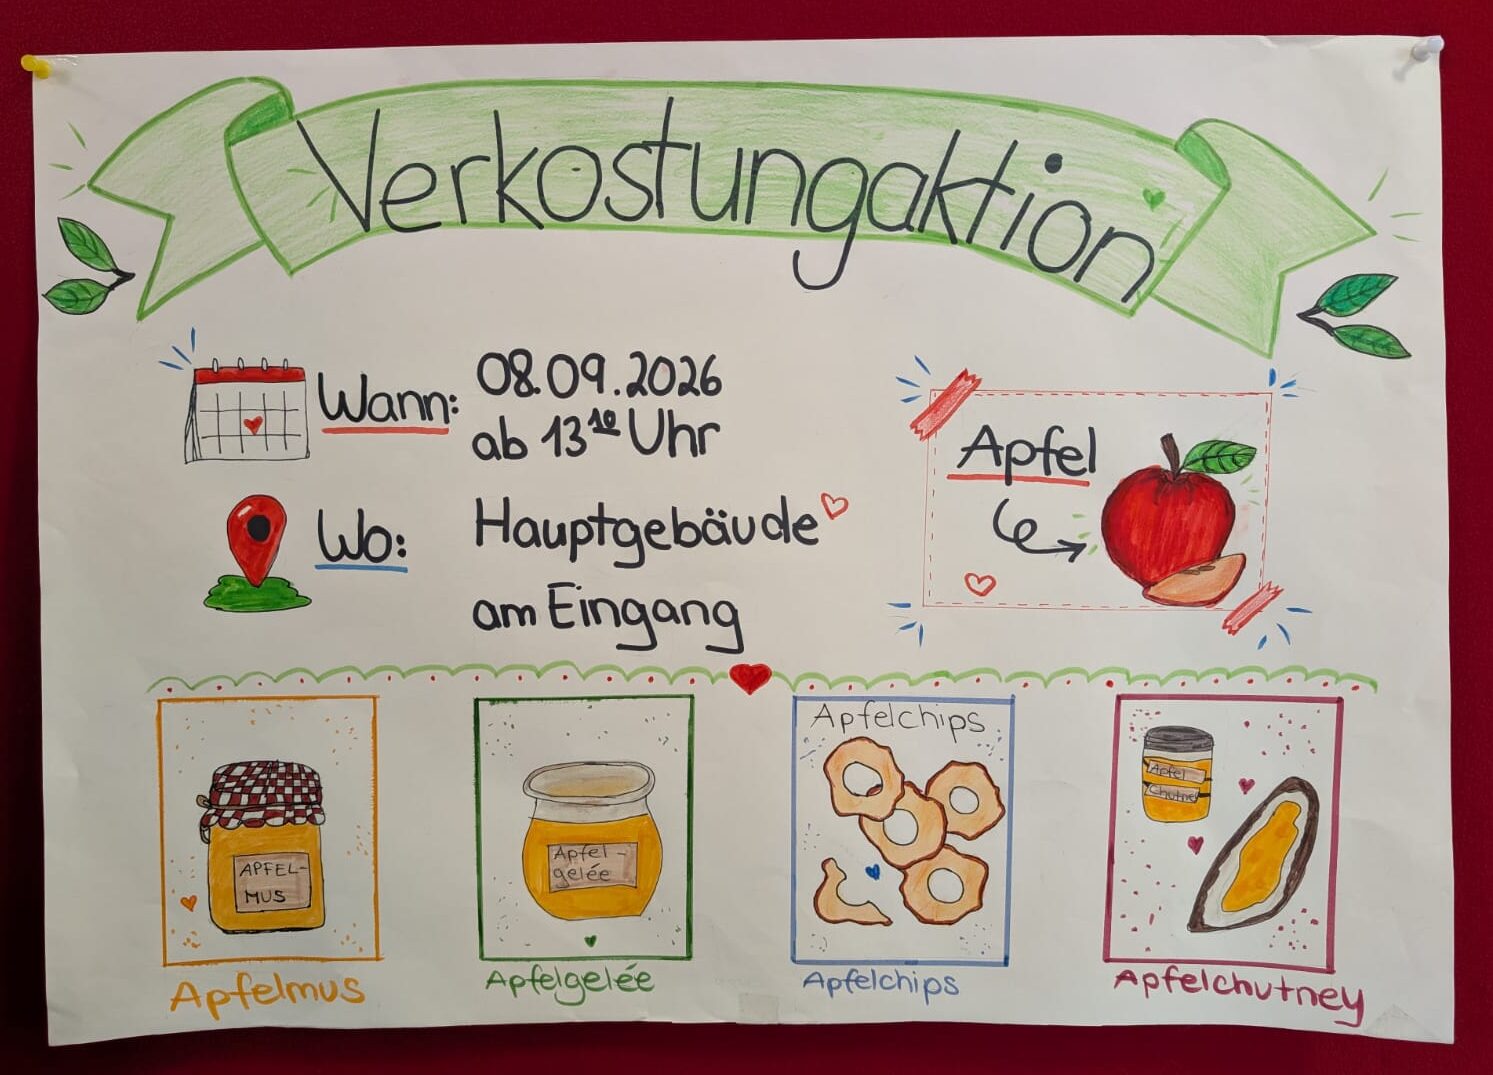 Verkostungaktion
Wann: 08.09.2026
ab 13¹⁰ Uhr
Wo: Hauptgebäude
am Eingang
Apfel
APFEL-
MUS
Apfelmus
Apfel-
gelée
Apfelgelée
Apfelchips
Apfelchips
Apfel
Chutney
Apfelchutney